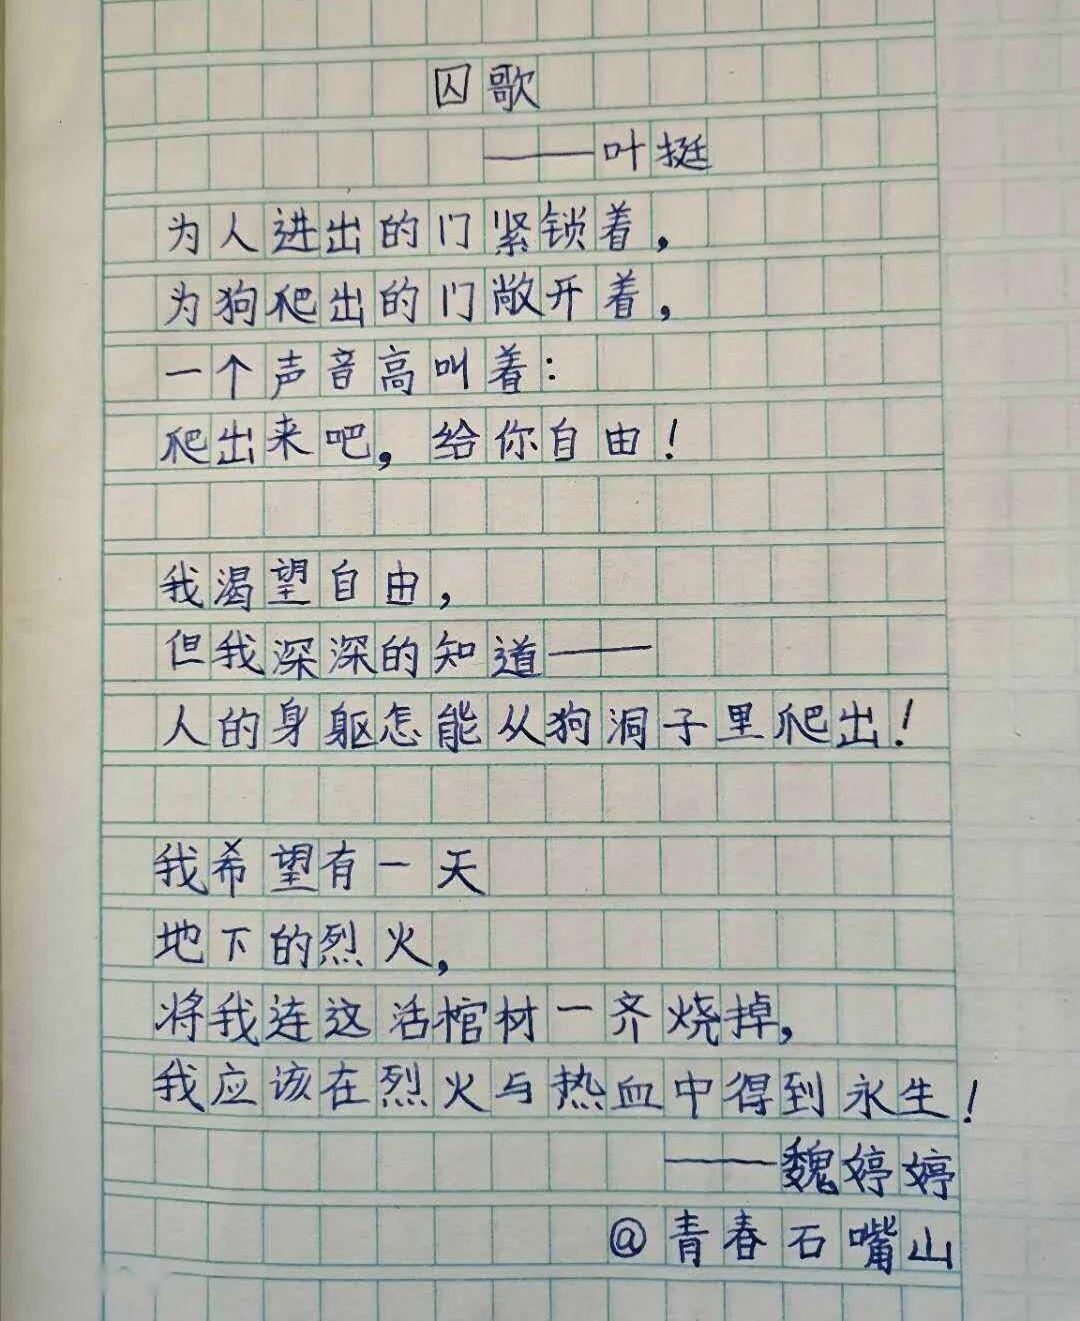 囚歌
——叶挺
为人进出的门紧锁着，
为狗爬出的门敞开着，
一个声音高叫着：
爬出来吧，给你自由！
我渴望自由，
但我深深的知道——
人的身躯怎能从狗洞子里爬出！
我希望有一天
地下的烈火，
将我连这活棺材一齐烧掉，
我应该在烈火与热血中得到永生！
——魏婷婷
@青春石嘴山